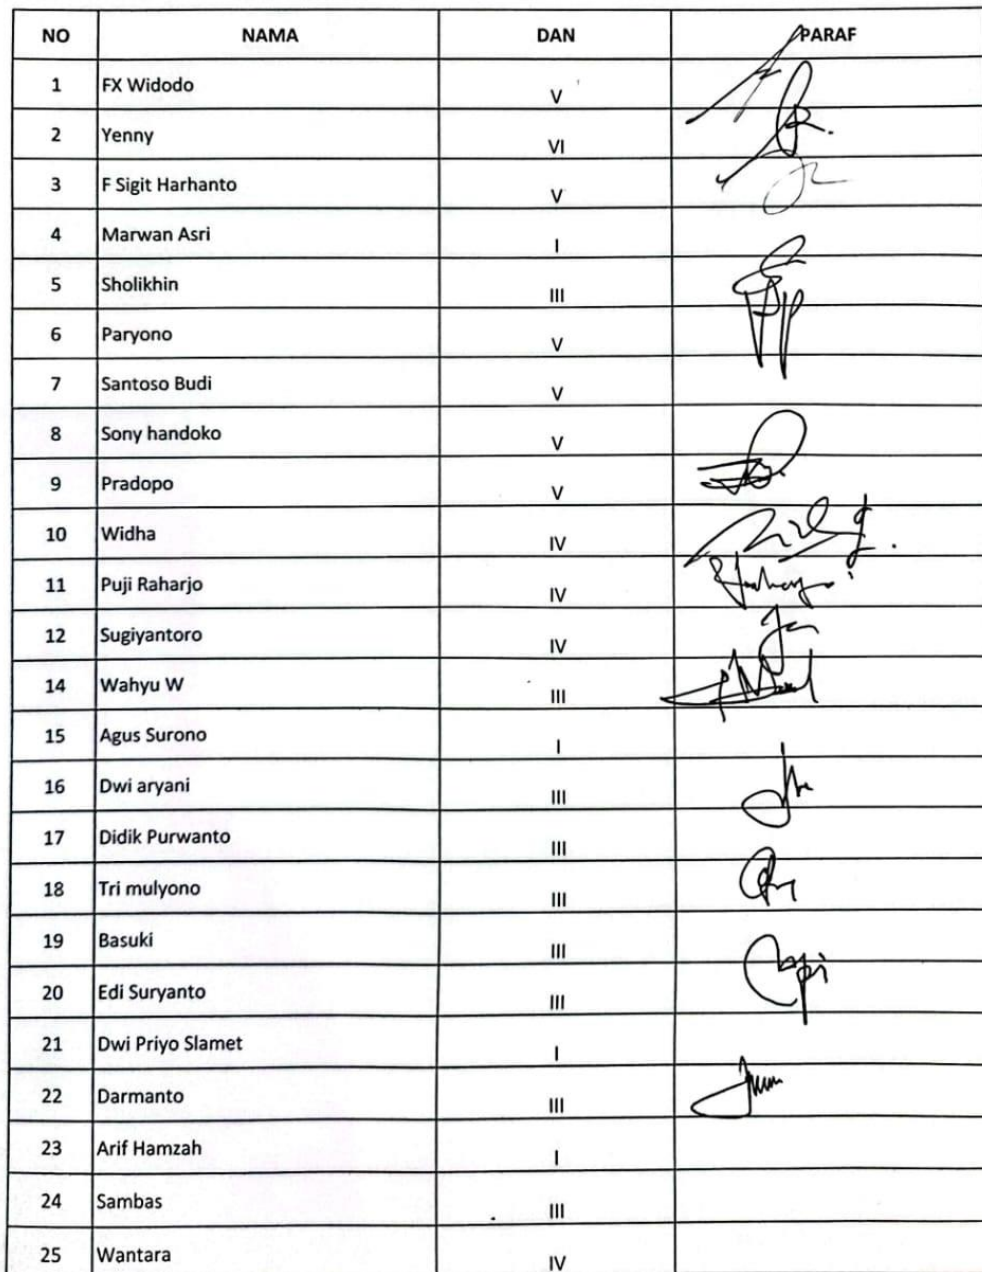 NO NAMA DAN PARAF
1 FX Widodo V
2 Yenny VI
3 F Sigit Harhanto V
4 Marwan Asri I
5 Sholikhin III
6 Paryono V
7 Santoso Budi V
8 Sony handoko V
9 Pradopo V
10 Widha IV
11 Puji Raharjo IV
12 Sugiyantoro IV
14 Wahyu W III
15 Agus Surono I
16 Dwi aryani III
17 Didik Purwanto III
18 Tri mulyono III
19 Basuki III
20 Edi Suryanto III
21 Dwi Priyo Slamet I
22 Darmanto III
23 Arif Hamzah I
24 Sambas III
25 Wantara IV